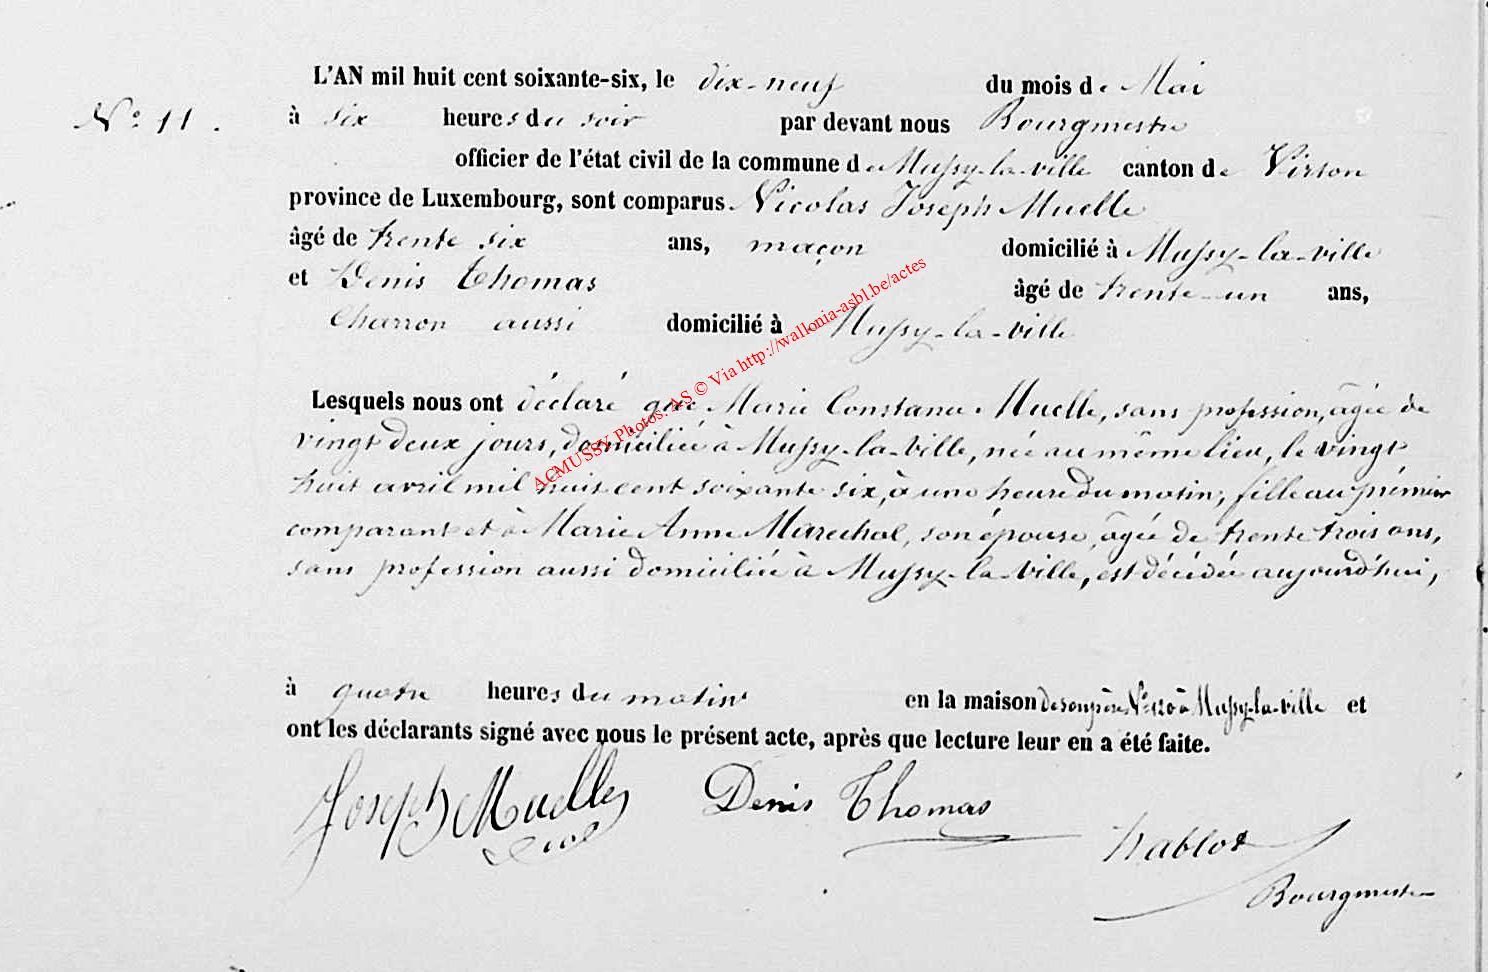 L'AN mil huit cent soixante-six, le dix-neuf du mois de Mai
N° 11. à six heures du soir par devant nous Bourgmestre
officier de l'état civil de la commune de Mussy-la-ville canton de Virton
province de Luxembourg, sont comparus Nicolas Joseph Muelle
âgé de trente six ans, maçon domicilié à Mussy-la-ville
et Denis Thomas âgé de trente-un ans,
Charron aussi domicilié à Mussy-la-ville
ACMUSSY Photos: AS © Via http://wallonia-asbl.be/actes
Lesquels nous ont déclaré que Marie Constance Muelle, sans profession, âgée de
vingt deux jours, domiciliée à Mussy-la-Ville, née au même lieu, le vingt
huit avril mil huit cent soixante six, à une heure du matin, fille au prémier
comparant et à Marie Anne Marechal, son épouse, âgée de trente trois ans,
sans profession aussi domiciliée à Mussy-la-Ville, est décédée aujourd'hui,
à quatre heures du matin en la maison de son père N° 120 à Mussy-la-ville et
ont les déclarants signé avec nous le présent acte, après que lecture leur en a été faite.
Joseph Muelle Denis Thomas
hablot
Bourgmestre